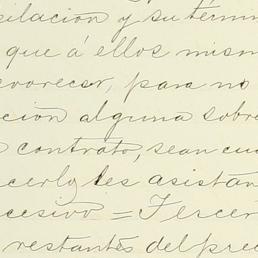 pilación y su térmi
que á ellos mism
avorecer, para no
ción alguna sobre
contrato, sean cua
cerlo, les asistan
cesivo = Tercer
restantes del prec